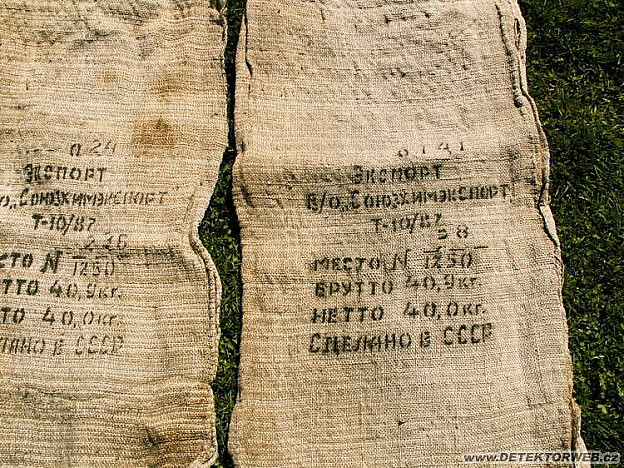 0 24
ЭКСПОРТ
/О „СОЮЗХИМЭКСПОРТ"
Т-10/87
226
СТО N 1250
ТТО 40,9кг.
ТТО 40,0кг.
ЕЛАНО В СССР
0141
ЭКСПОРТ
В/О „СОЮЗХИМЭКСПОРТ"
Т-10/87
28
МЕСТО N 1250
БРУТТО 40,9кг.
НЕТТО 40,0кг.
СДЕЛАНО В СССР
WWW.DETEKTORWEB.CZ